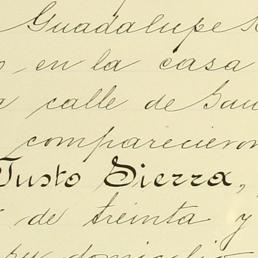 Guadalupe
en la casa
calle de San
comparecieron
Justo Sierra,
de treinta y
su domicilio